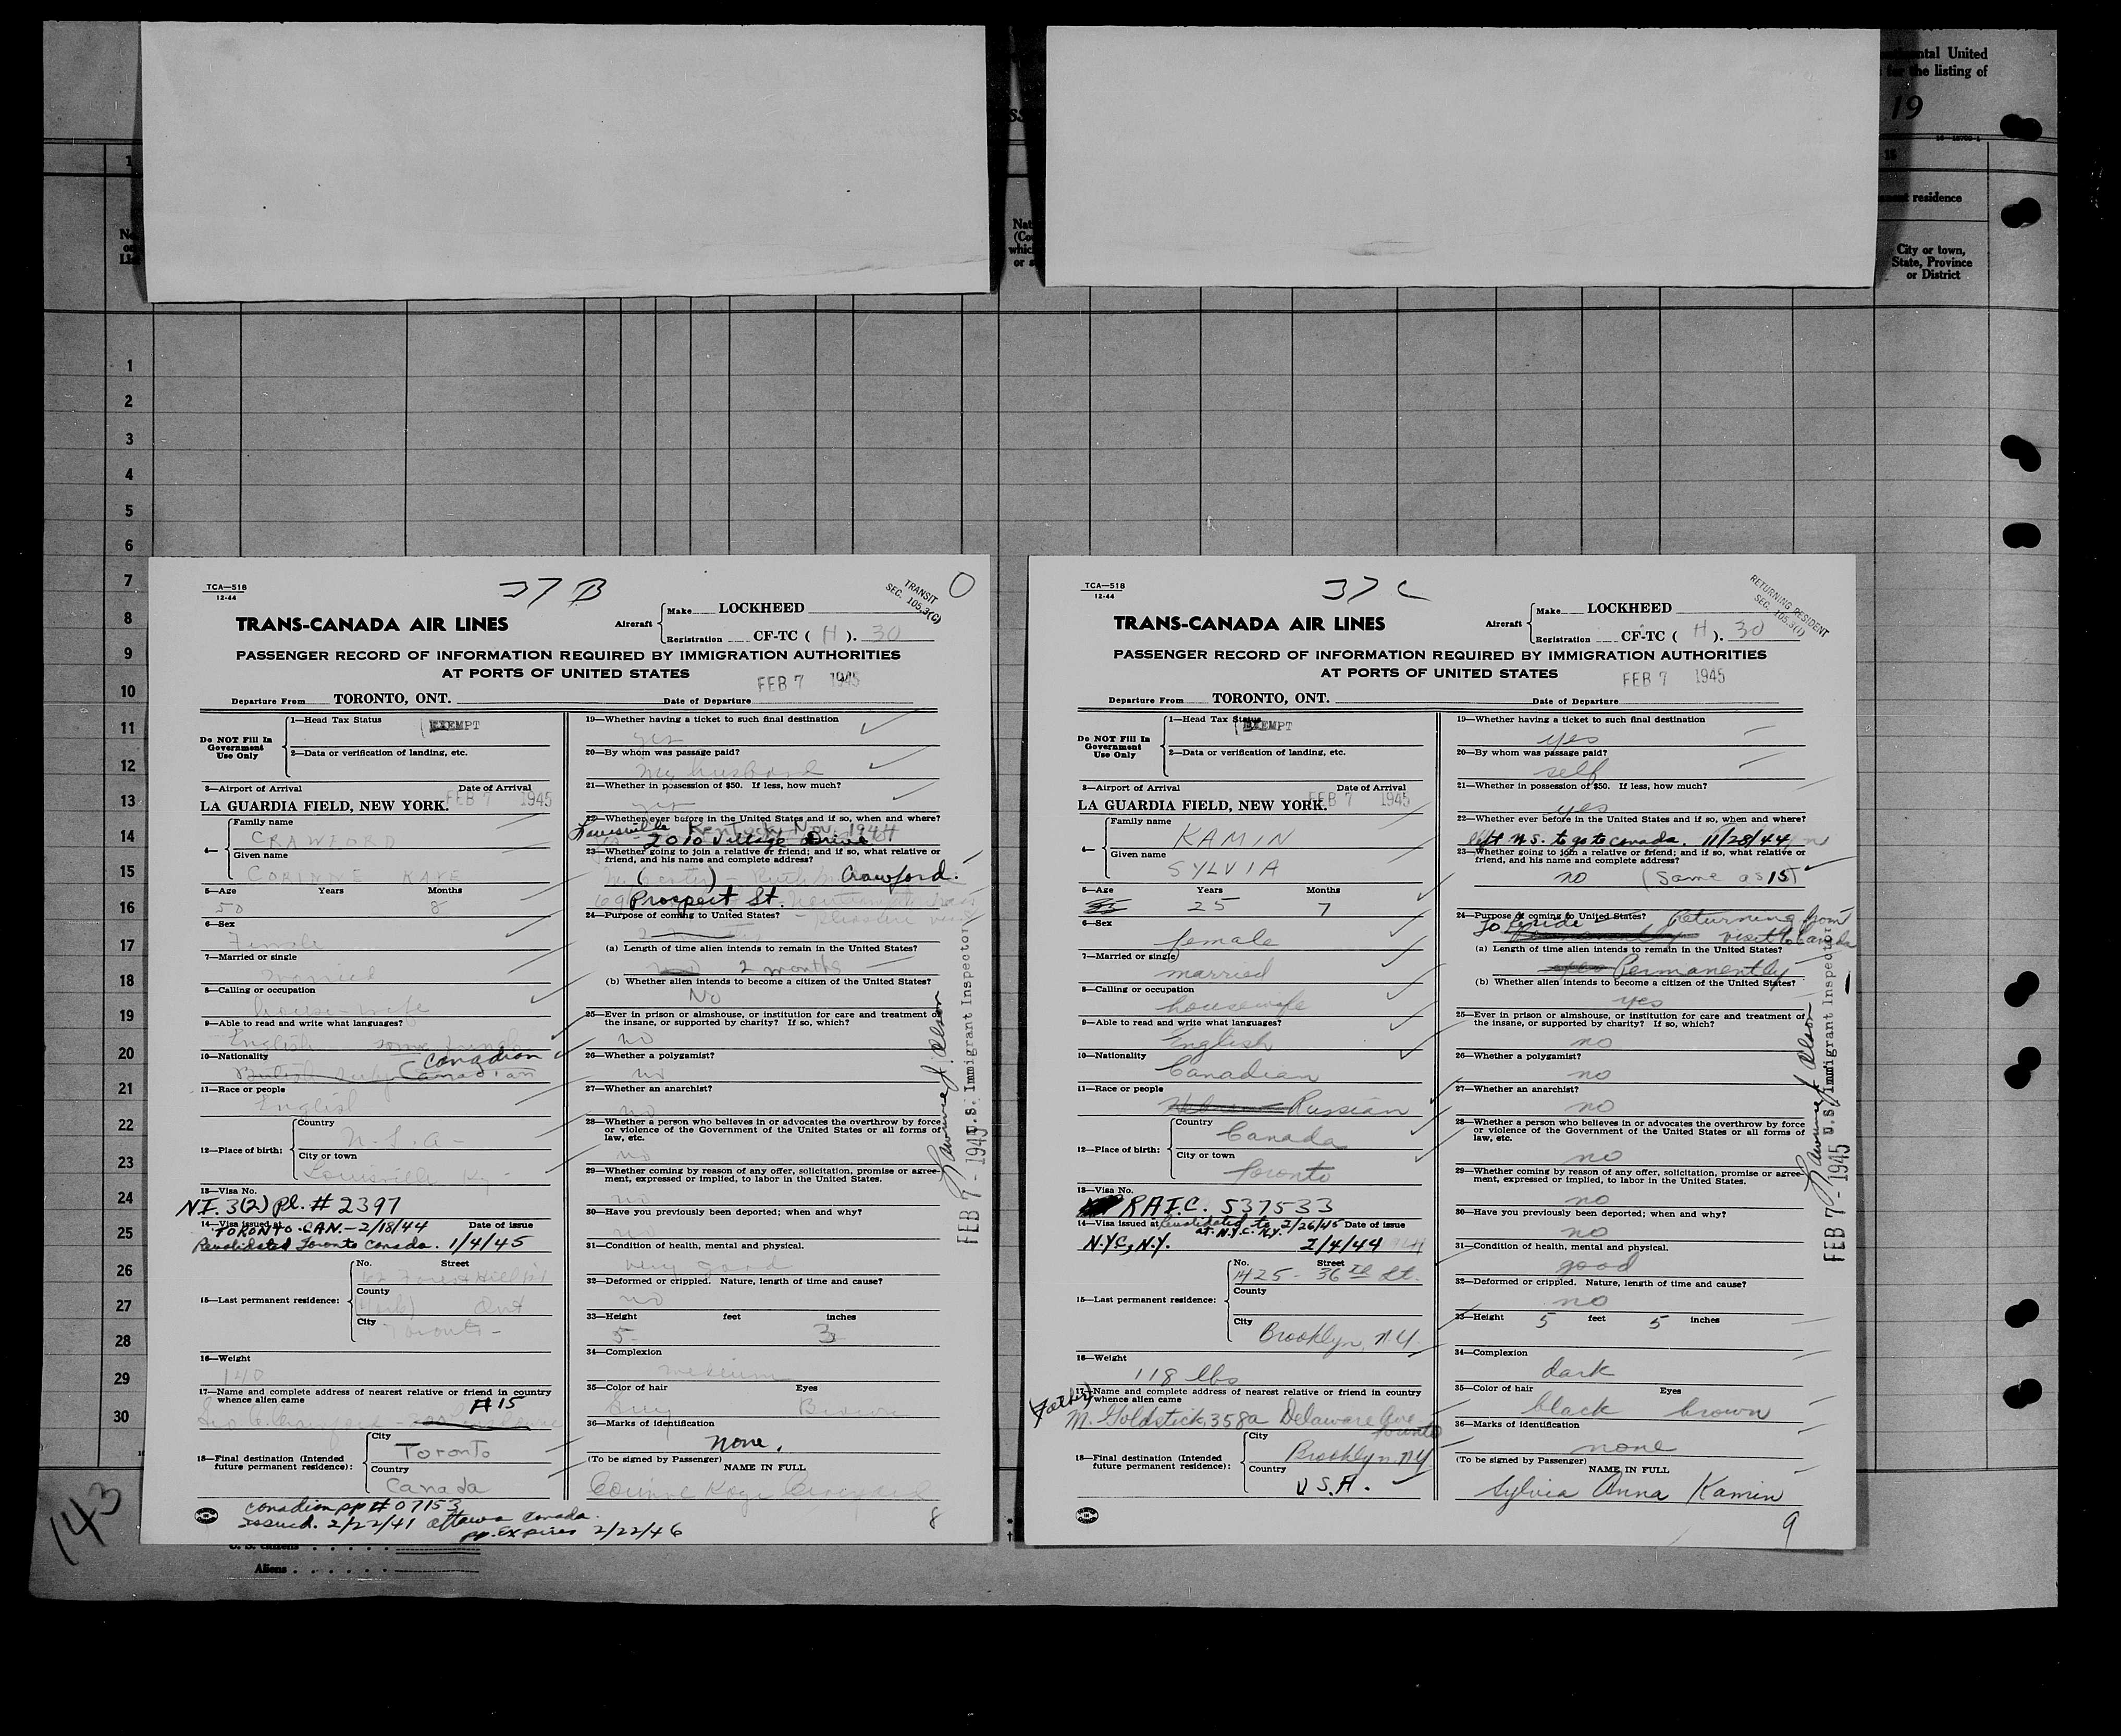 ntal United
for the listing of
19
15
residence
City or town,
State, Province
or District
1
2
3
4
5
6
7
8
9
10
11
12
13
14
15
16
17
18
19
20
21
22
23
24
25
26
27
28
29
30
143
TCA—518
12-44
37 B
TRANSIT
SEC. 105.3(C)
TRANS-CANADA AIR LINES
Aircraft
Make LOCKHEED
Registration CF-TC ( H ). 30
PASSENGER RECORD OF INFORMATION REQUIRED BY IMMIGRATION AUTHORITIES
AT PORTS OF UNITED STATES
FEB 7 1945
Departure From TORONTO, ONT. Date of Departure
Do NOT Fill In
Government
Use Only
1—Head Tax Status EXEMPT
2—Data or verification of landing, etc.
3—Airport of Arrival Date of Arrival
LA GUARDIA FIELD, NEW YORK. FEB 7 1945
4—
Family name
CRAWFORD
Given name
CORINNE KAYE
5—Age Years Months
50 8
6—Sex
Female
7—Married or single
married
8—Calling or occupation
house-wife
9—Able to read and write what languages?
English some French
10—Nationality
Canadian
British Subj Canadian
11—Race or people
English
12—Place of birth:
Country
U.S.A.
City or town
Louisville Ky
13—Visa No.
NI. 3(2) pl. # 2397
14—Visa issued at Date of issue
TORONTO CAN — 2/18/44
Revalidated Toronto Canada. 1/4/45
15—Last permanent residence:
No. Street
62 Forest Hill Rd
County
(York) Ont
City
Toronto
16—Weight
140
17—Name and complete address of nearest relative or friend in country
whence alien came
# 15
Crawford
18—Final destination (Intended
future permanent residence):
City
Toronto
Country
Canada
Canadian pp # 07153
issued. 2/22/41 Ottawa Canada.
pp. Expires 2/22/46
19—Whether having a ticket to such final destination
yes
20—By whom was passage paid?
my husband
21—Whether in possession of $50. If less, how much?
yes
22—Whether ever before in the United States and if so, when and where?
Louisville Kentucky Nov. 1944
2010 Village Drive
23—Whether going to join a relative or friend; and if so, what relative or
friend, and his name and complete address?
(sister) — Ruth Crawford.
69 Prospect St.
24—Purpose of coming to United States? - pleasure visit
(a) Length of time alien intends to remain in the United States?
2 months
(b) Whether alien intends to become a citizen of the United States?
No
25—Ever in prison or almshouse, or institution for care and treatment of
the insane, or supported by charity? If so, which?
no
26—Whether a polygamist?
no
27—Whether an anarchist?
no
28—Whether a person who believes in or advocates the overthrow by force
or violence of the Government of the United States or all forms of
law, etc.
no
29—Whether coming by reason of any offer, solicitation, promise or agree-
ment, expressed or implied, to labor in the United States.
no
30—Have you previously been deported; when and why?
no
31—Condition of health, mental and physical.
very good
32—Deformed or crippled. Nature, length of time and cause?
no
33—Height feet inches
5 3
34—Complexion
medium
35—Color of hair Eyes
Grey Brown
36—Marks of identification
none.
(To be signed by Passenger)
NAME IN FULL
Corinne Kaye Crawford
8
FEB 7 - 1945 U.S. Immigrant Inspector
TCA—518
12-44
37 C
RETURNING RESIDENT
SEC. 105.3(1)
TRANS-CANADA AIR LINES
Aircraft
Make LOCKHEED
Registration CF-TC ( H ). 30
PASSENGER RECORD OF INFORMATION REQUIRED BY IMMIGRATION AUTHORITIES
AT PORTS OF UNITED STATES
FEB 7 1945
Departure From TORONTO, ONT. Date of Departure
Do NOT Fill In
Government
Use Only
1—Head Tax Status EXEMPT
2—Data or verification of landing, etc.
3—Airport of Arrival Date of Arrival
LA GUARDIA FIELD, NEW YORK. FEB 7 1945
4—
Family name
KAMIN
Given name
SYLVIA
5—Age Years Months
25 7
6—Sex
female
7—Married or single
married
8—Calling or occupation
housewife
9—Able to read and write what languages?
English
10—Nationality
Canadian
11—Race or people
Hebrew Russian
12—Place of birth:
Country
Canada
City or town
Toronto
13—Visa No.
RAIC. 537533
14—Visa issued at Revalidated to 2/26/45 Date of issue
at N.Y.C. N.Y.
N.Y.C, N.Y. 2/4/44
15—Last permanent residence:
No. Street
1425 - 36th St.
County
City
Brooklyn, N.Y.
16—Weight
118 lbs
(Father)
17—Name and complete address of nearest relative or friend in country
whence alien came
M. Goldstick, 358a Delaware Ave
Toronto
18—Final destination (Intended
future permanent residence):
City
Brooklyn, NY
Country
U.S.A.
19—Whether having a ticket to such final destination
yes
20—By whom was passage paid?
self
21—Whether in possession of $50. If less, how much?
yes
22—Whether ever before in the United States and if so, when and where?
left U.S. to go to Canada. 11/28/44
23—Whether going to join a relative or friend; and if so, what relative or
friend, and his name and complete address?
no (same as 15)
24—Purpose of coming to United States? Returning from
To reside permanently visit to Canada
(a) Length of time alien intends to remain in the United States?
Permanently
(b) Whether alien intends to become a citizen of the United States?
yes
25—Ever in prison or almshouse, or institution for care and treatment of
the insane, or supported by charity? If so, which?
no
26—Whether a polygamist?
no
27—Whether an anarchist?
no
28—Whether a person who believes in or advocates the overthrow by force
or violence of the Government of the United States or all forms of
law, etc.
no
29—Whether coming by reason of any offer, solicitation, promise or agree-
ment, expressed or implied, to labor in the United States.
no
30—Have you previously been deported; when and why?
no
31—Condition of health, mental and physical.
good
32—Deformed or crippled. Nature, length of time and cause?
no
33—Height 5 feet 5 inches
34—Complexion
dark
35—Color of hair Eyes
black brown
36—Marks of identification
none
(To be signed by Passenger)
NAME IN FULL
Sylvia Anna Kamin
9
FEB 7 - 1945 U.S. Immigrant Inspector
Aliens